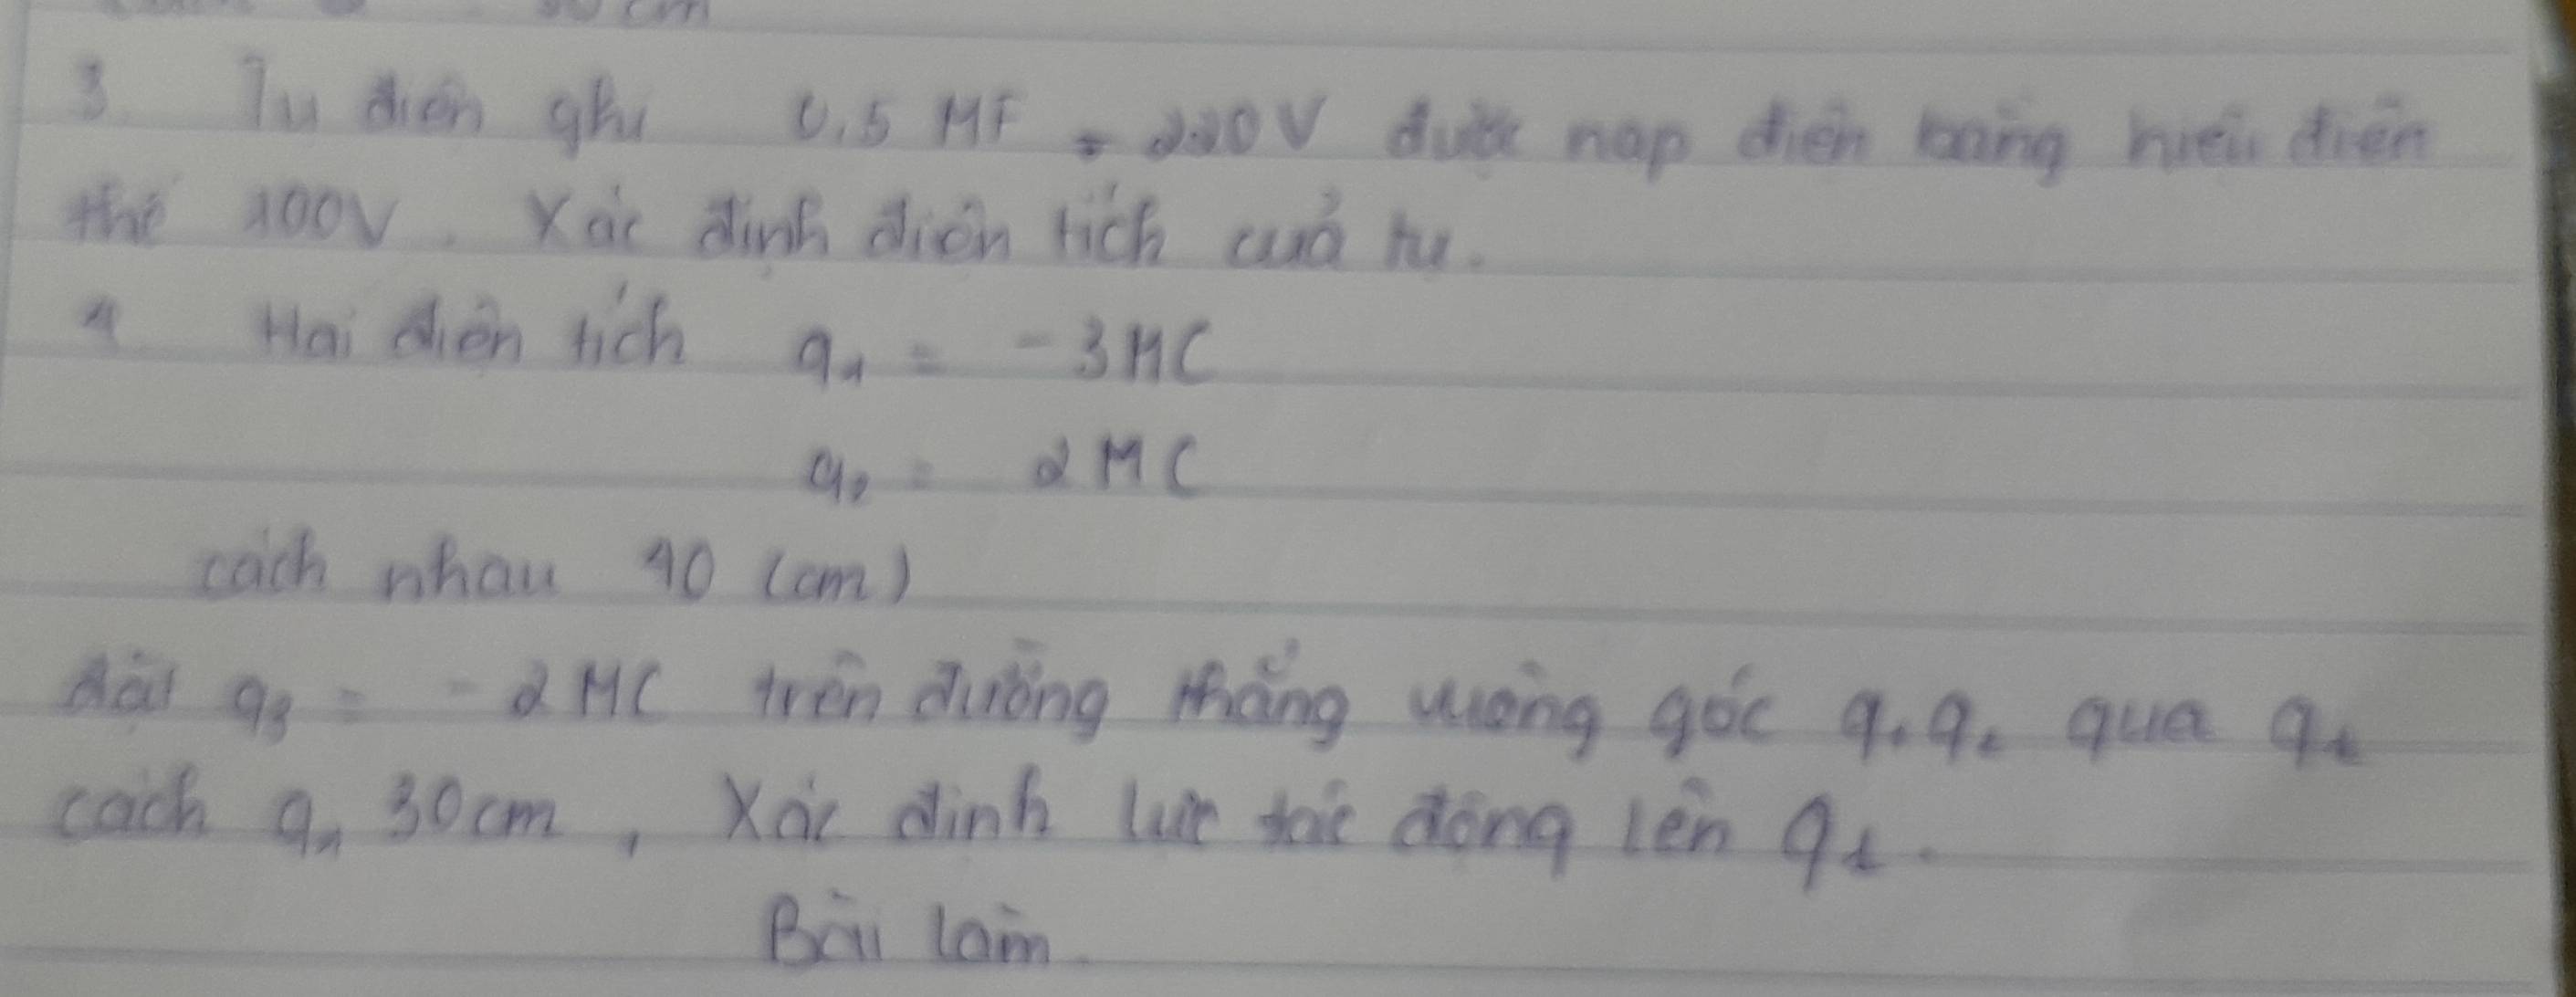 30 cm
3. Tụ điện ghi 0.5 MF - 220V được nạp điện bằng hiệu điện
thế 100V. Xác định điện tích cuả tụ.
4. Hai điện tích q₁ = -3 MC
q₂ = 2 MC
cách nhau 40 (cm)
đặt q₃ = -2 MC trên đường thẳng vuông góc q₁q₂ qua q₁
cách q₁ 30cm, Xác định lực tác động lên q₁.
Bài làm